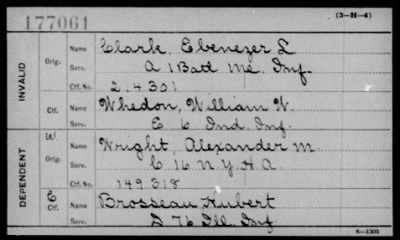 177061
(3—H—4)
INVALID
Orig.
Name Clark, Ebenezer L
Serv. A 1 Batt Me. Inf.
Ctf. No. 214301
Ctf.
Name Whedon, William W.
Serv. E 6 Ind. Inf.
DEPENDENT
W
Orig.
Name Wright, Alexander M.
Serv. C 16 N.Y. H A.
Ctf. No. 149318
C
Ctf.
Name Brosseau, Hubert
Serv. D 76 Ill. Inf.
6—1303